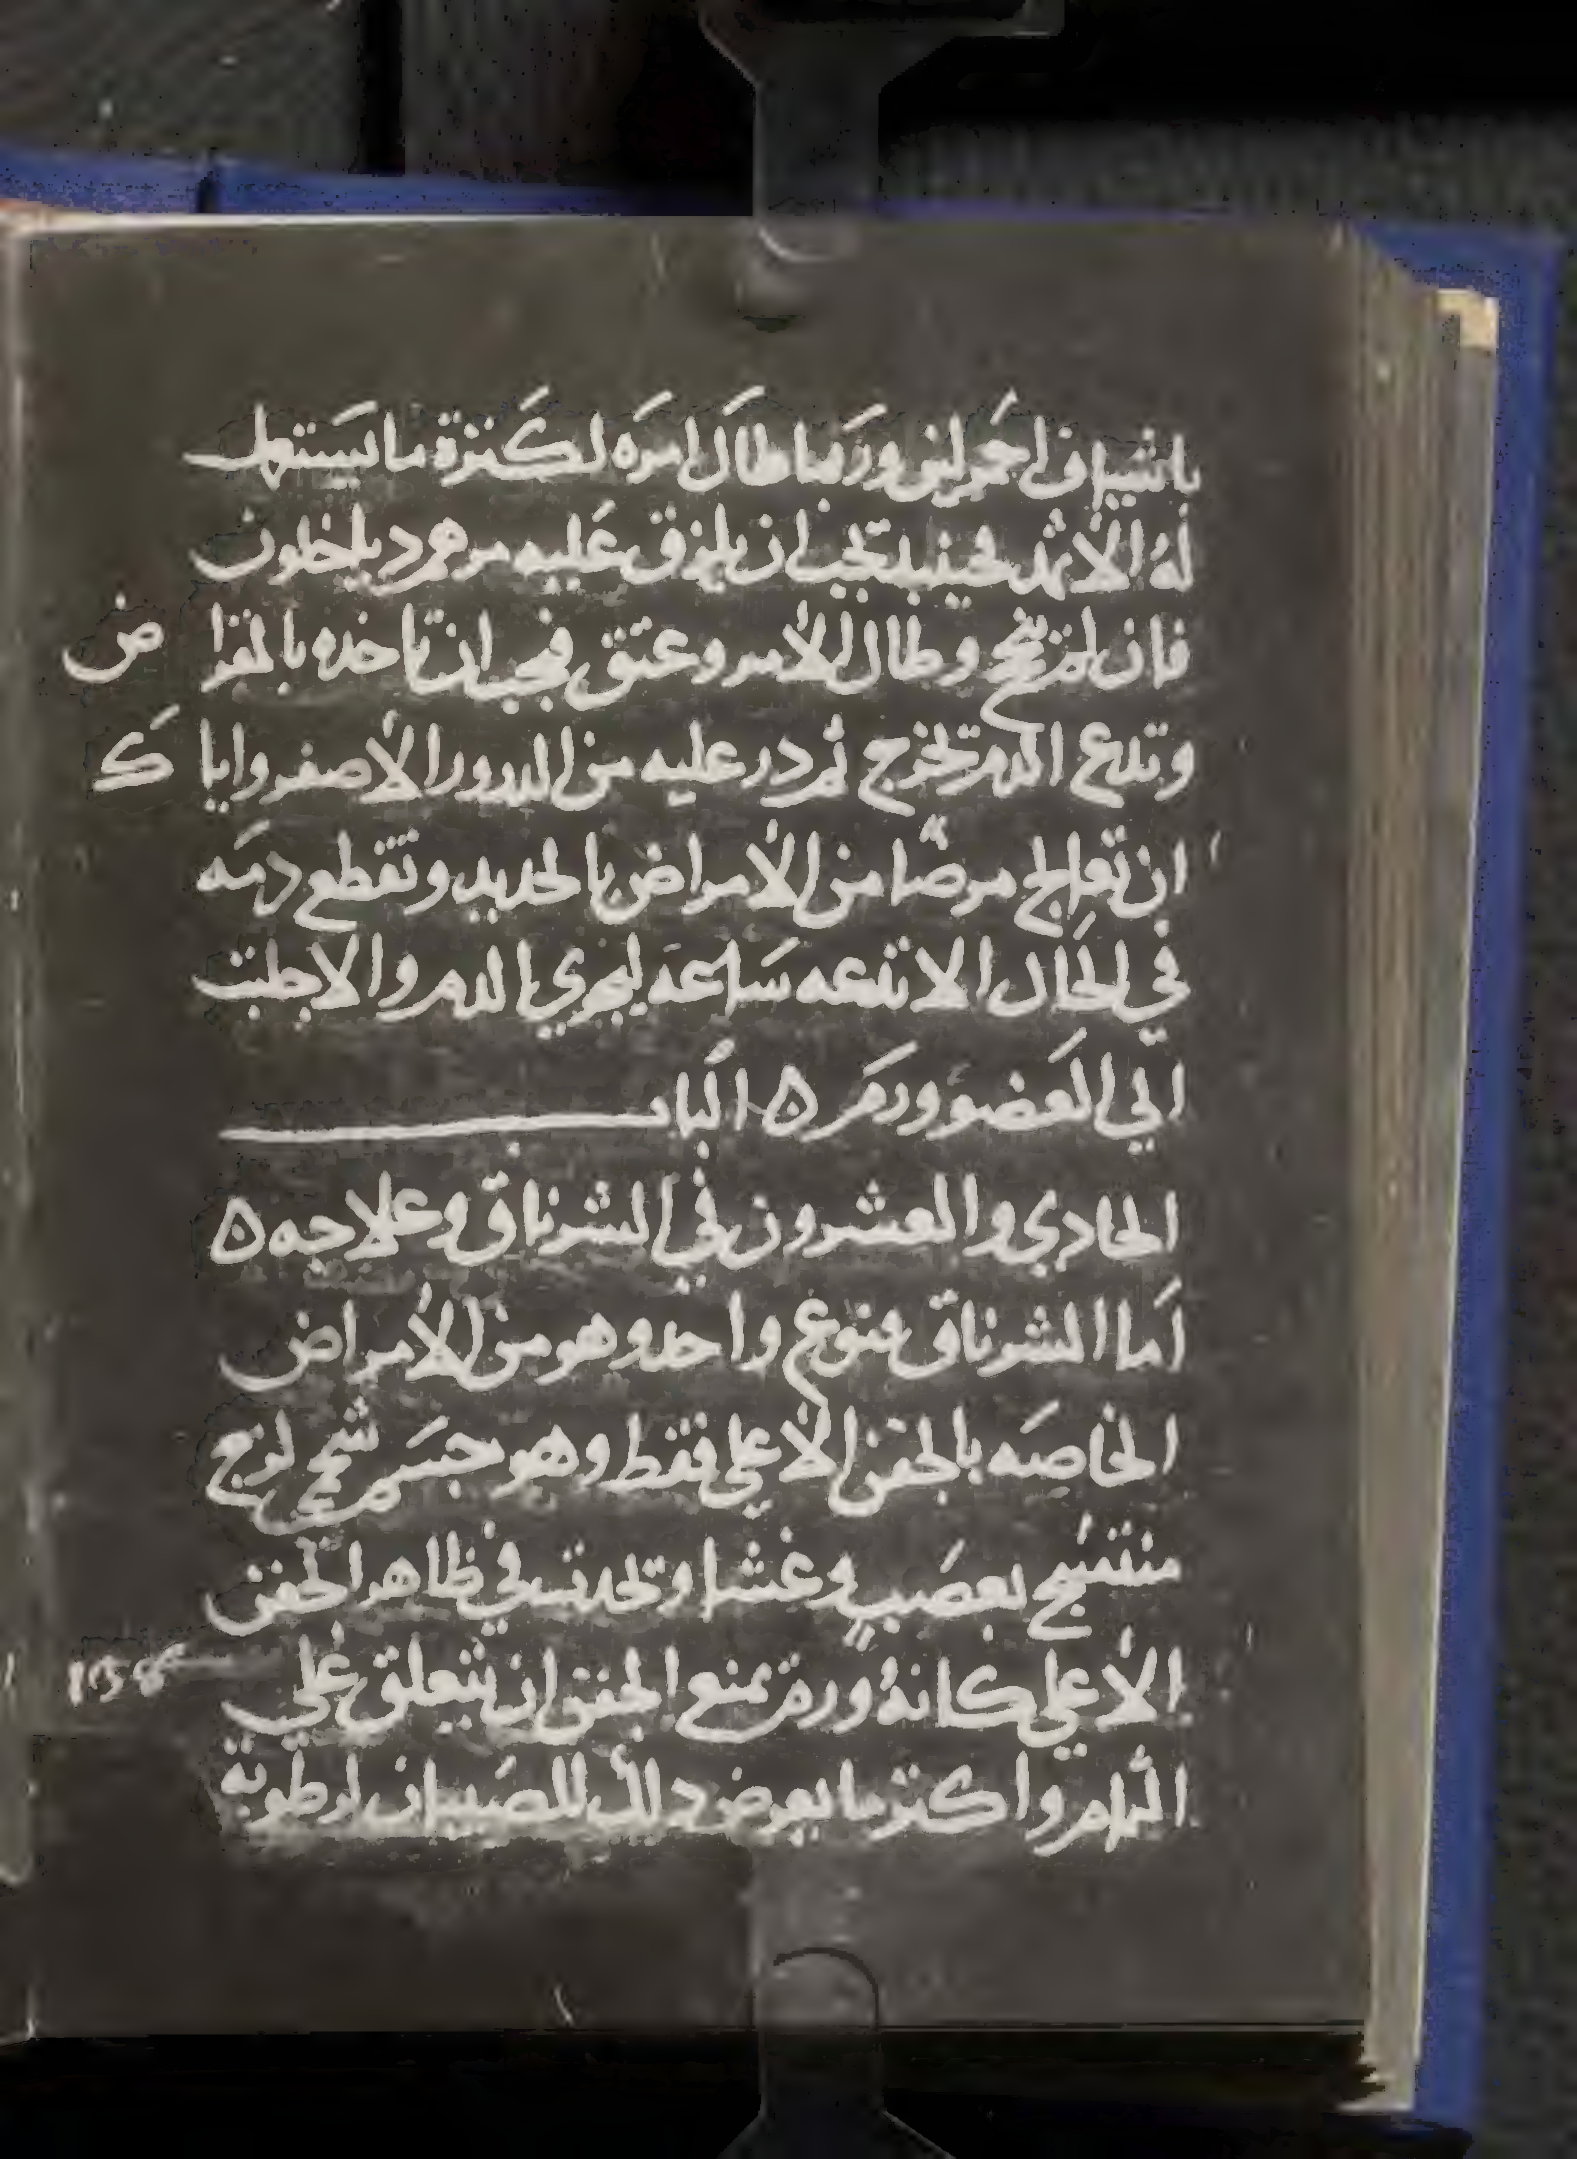 باشياف احمر لين وربما طال امره لكثرة ما يستعمل
له الاثمد فحينيد تجب ان يلزق عليه مرهم دياخلون
فان لم ينجح وطال الأمر وعتق فيجب ان تاخده بالمقراض
وتدع الدم تخرج ثم در عليه من الدرور الأصفر واياك
ان تعالج مرضًا من الأمراض بالحديد وتقطع دمه
في الحال الا تدعه ساعه ليجري الدم والا جلبت
الي العضو ورم ٥ الباب
الحادي والعشرون في الشرناق وعلاجه ٥
أما الشرناق فنوع واحد وهو من الأمراض
الخاصه بالجفن الأعلي فقط وهو جسم شحمي لزج
منتسج بعصب وغشا وتحدث في ظاهر الجفن
الأعلي كانه ورم يمنع الجفن ان يتعلق علي
التمام واكثر ما يعرض دلك للصبيان لرطوبة